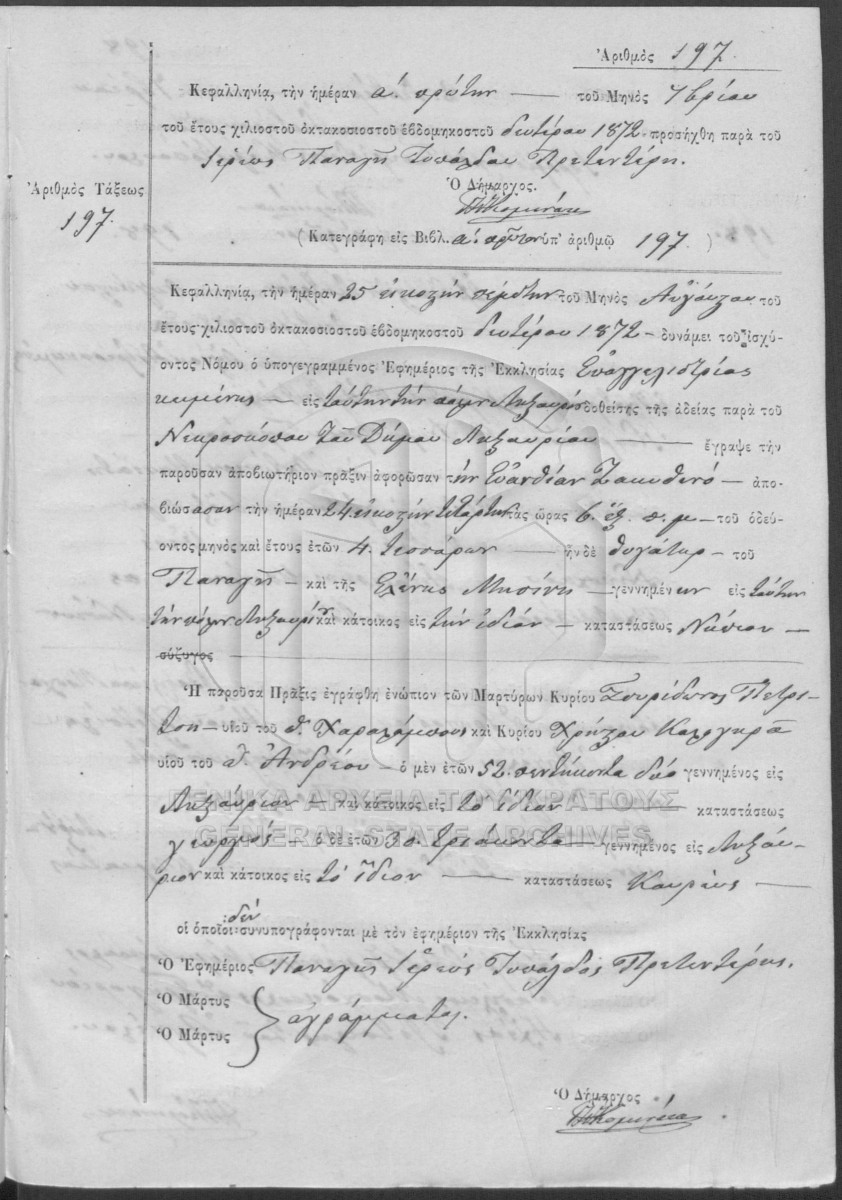 Ἀριθμὸς 197
Κεφαλληνίᾳ, τὴν ἡμέραν α΄. πρώτην — τοῦ Μηνὸς 7βρίου
τοῦ ἔτους χιλιοστοῦ ὀκτακοσιοστοῦ ἑβδομηκοστοῦ δευτέρου 1872 προσήχθη παρὰ τοῦ
Ἱερέως Παναγῆ Τυπάλδου Πρετεντέρη.
Ὁ Δήμαρχος.
Ἀριθμὸς Τάξεως
197.
(Κατεγράφη εἰς Βιβλ. α΄. πρῶτον ὑπ' ἀριθμῷ 197)
Κεφαλληνίᾳ, τὴν ἡμέραν 25 εἰκοστὴν πέμπτην τοῦ Μηνὸς Αὐγούστου τοῦ
ἔτους χιλιοστοῦ ὀκτακοσιοστοῦ ἑβδομηκοστοῦ δευτέρου 1872 — δυνάμει τοῦ ἰσχύ-
οντος Νόμου ὁ ὑπογεγραμμένος Ἐφημέριος τῆς Ἐκκλησίας Εὐαγγελιστρίας
κειμένης — εἰς ταύτην τὴν πόλιν Ληξουρίου δοθείσης τῆς ἀδείας παρὰ τοῦ
Νεκροσκόπου τοῦ Δήμου Ληξουρίου — ἔγραψε τὴν
παροῦσαν ἀποβιωτήριον πρᾶξιν ἀφορῶσαν τὴν Εὐανθίαν Ζακυθινό — ἀπο-
βιώσασαν τὴν ἡμέραν 24 εἰκοστὴν τετάρτην τὰς ὥρας 6. ἓξ. π. μ — τοῦ ὁδεύ-
οντος μηνὸς καὶ ἔτους ἐτῶν 4. τεσσάρων — ἦν δὲ θυγάτηρ — τοῦ
Παναγῆ — καὶ τῆς Ἑλένης — γεννημένην εἰς ταύτην
τὴν πόλιν Ληξουρίου καὶ κάτοικος εἰς τὴν ἰδίαν — καταστάσεως Νήπιον —
σύζυγος
Ἡ παροῦσα Πρᾶξις ἐγράφθη ἐνώπιον τῶν Μαρτύρων Κυρίου Σπυρίδωνος Πετρι-
υἱοῦ τοῦ π. Χαραλάμπους καὶ Κυρίου Χρήστου Καλογηρᾶ
υἱοῦ τοῦ π. Ἀνδρέου — ὁ μὲν ἐτῶν 52. πεντήκοντα δύο γεννημένος εἰς
Ληξούριον — καὶ κάτοικος εἰς τὸ ἴδιον — καταστάσεως
γεωργός — ὁ δὲ ἐτῶν 30. τριάκοντα — γεννημένος εἰς Ληξού-
ριον καὶ κάτοικος εἰς τὸ ἴδιον — καταστάσεως Κουρεύς —
: δέν
οἱ ὁποῖοι: συνυπογράφονται μὲ τὸν ἐφημέριον τῆς Ἐκκλησίας
Ὁ Ἐφημέριος Παναγῆς Ἱερεύς Τυπάλδος Πρετεντέρης.
Ὁ Μάρτυς
ἀγράμματοι.
Ὁ Μάρτυς
Ὁ Δήμαρχος
ΓΕΝΙΚΑ ΑΡΧΕΙΑ ΤΟΥ ΚΡΑΤΟΥΣ
GENERAL STATE ARCHIVES